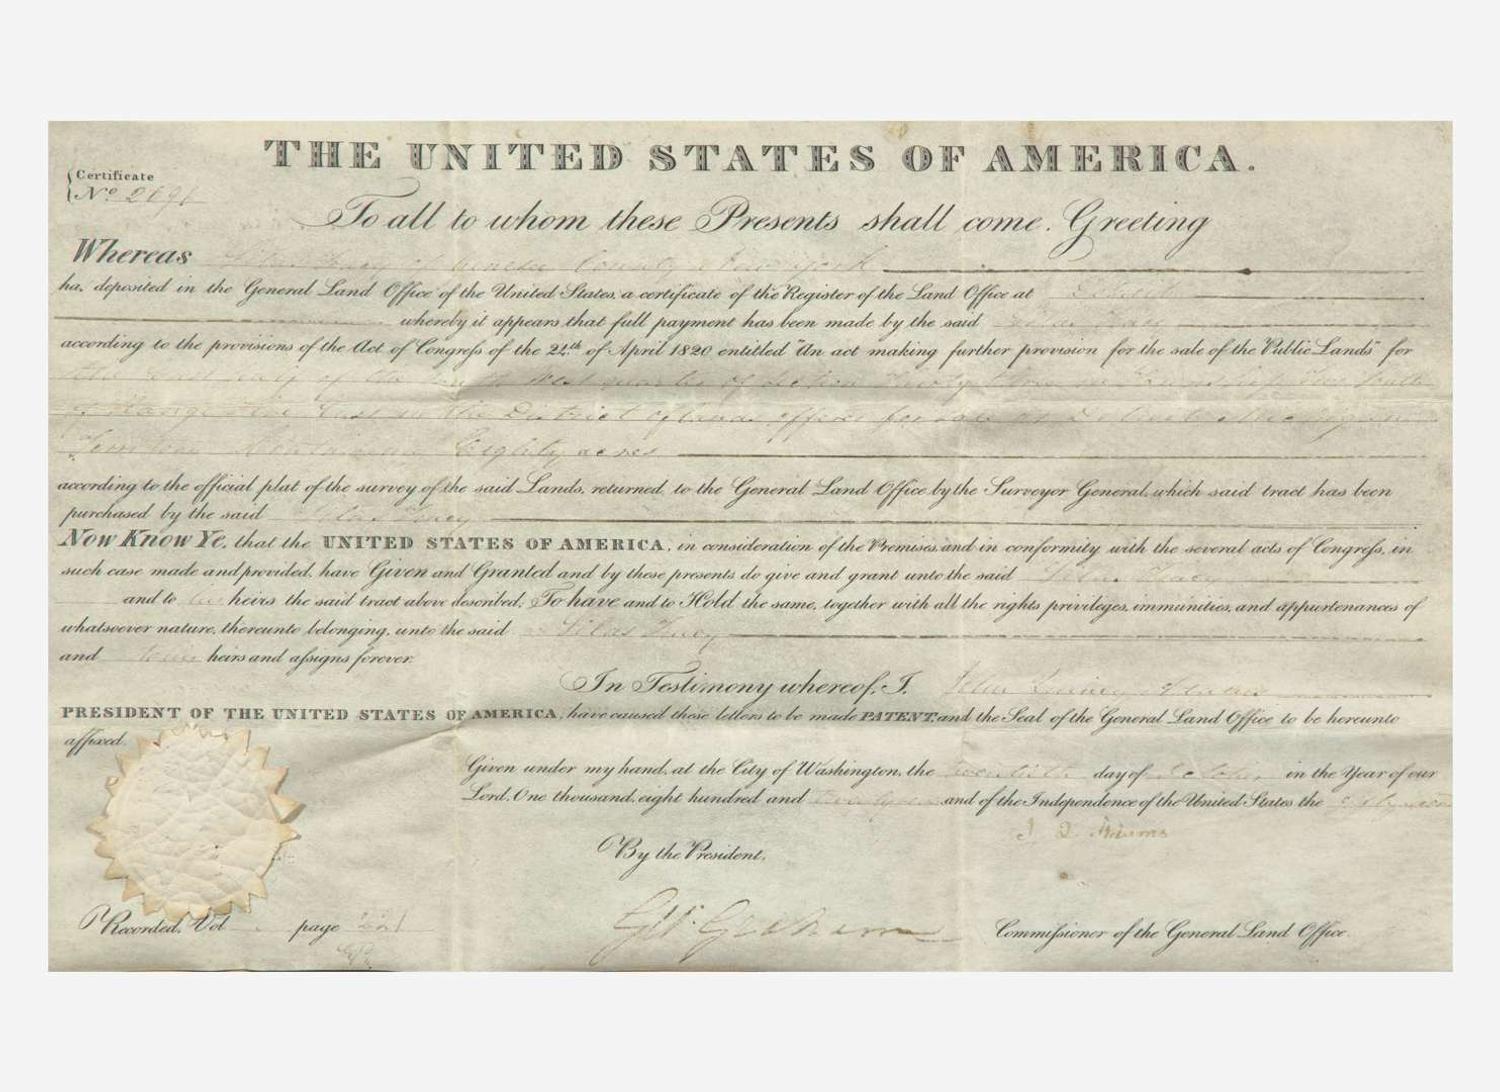 THE UNITED STATES OF AMERICA.
Certificate
No
To all to whom these Presents shall come. Greeting
Whereas of County New York
ha, deposited in the General Land Office of the United States, a certificate of the Register of the Land Office at Detroit
whereby it appears that full payment has been made by the said Silas Tracy
according to the provisions of the Act of Congress of the 24th of April 1820 entitled "An act making further provision for the sale of the Public Lands" for
the half of the West quarter of Section Thirty three in Township Two South
of Range Five East in the District of lands offered for sale at Detroit Michigan
Territory Containing Eighty acres
according to the official plat of the survey of the said Lands, returned to the General Land Office by the Surveyor General, which said tract has been
purchased by the said Silas Tracy
Now Know Ye, that the UNITED STATES OF AMERICA, in consideration of the Premises, and in conformity with the several acts of Congress, in
such case made and provided, have Given and Granted and by these presents do give and grant unto the said Silas Tracy
and to his heirs the said tract above described; To have and to Hold the same, together with all the rights privileges, immunities, and appurtenances of
whatsoever nature, thereunto belonging, unto the said Silas Tracy
and heirs and assigns forever.
In Testimony whereof, I, John Quincy Adams
PRESIDENT OF THE UNITED STATES OF AMERICA, have caused these letters to be made PATENT, and the Seal of the General Land Office to be hereunto
affixed.
Given under my hand, at the City of Washington, the twentieth day of October in the Year of our
Lord, One thousand, eight hundred and and of the Independence of the United States the
J. Q. Adams
By the President,
Recorded, Vol page 221
G.W. Graham Commissioner of the General Land Office.